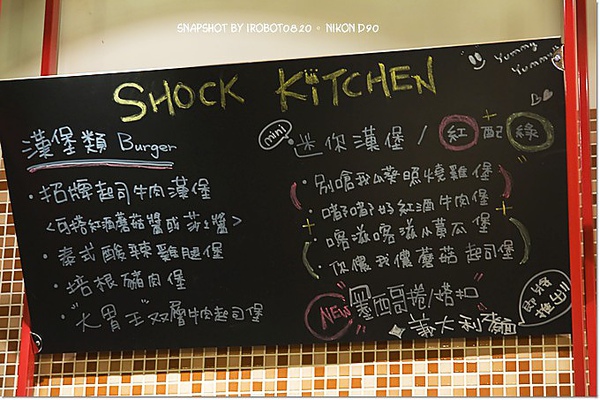 SNAPSHOT BY IROBOT0820 • NIKON D90
SHOCK KITCHEN
Yummy
Yummy
漢堡類 Burger
・招牌起司牛肉漢堡
<可搭紅酒蘑菇醬或莎莎醬>
・泰式酸辣雞腿堡
・培根豬肉堡
・"大胃王"双層牛肉起司堡
mini
迷你漢堡 / 紅配綠
・別嗆我公蔡照燒雞堡
・嘟嘟好紅酒牛肉堡
・喀滋喀滋小黃瓜堡
・你儂我儂蘑菇起司堡
NEW
墨西哥捲/塔扣
義大利麵
推出!!